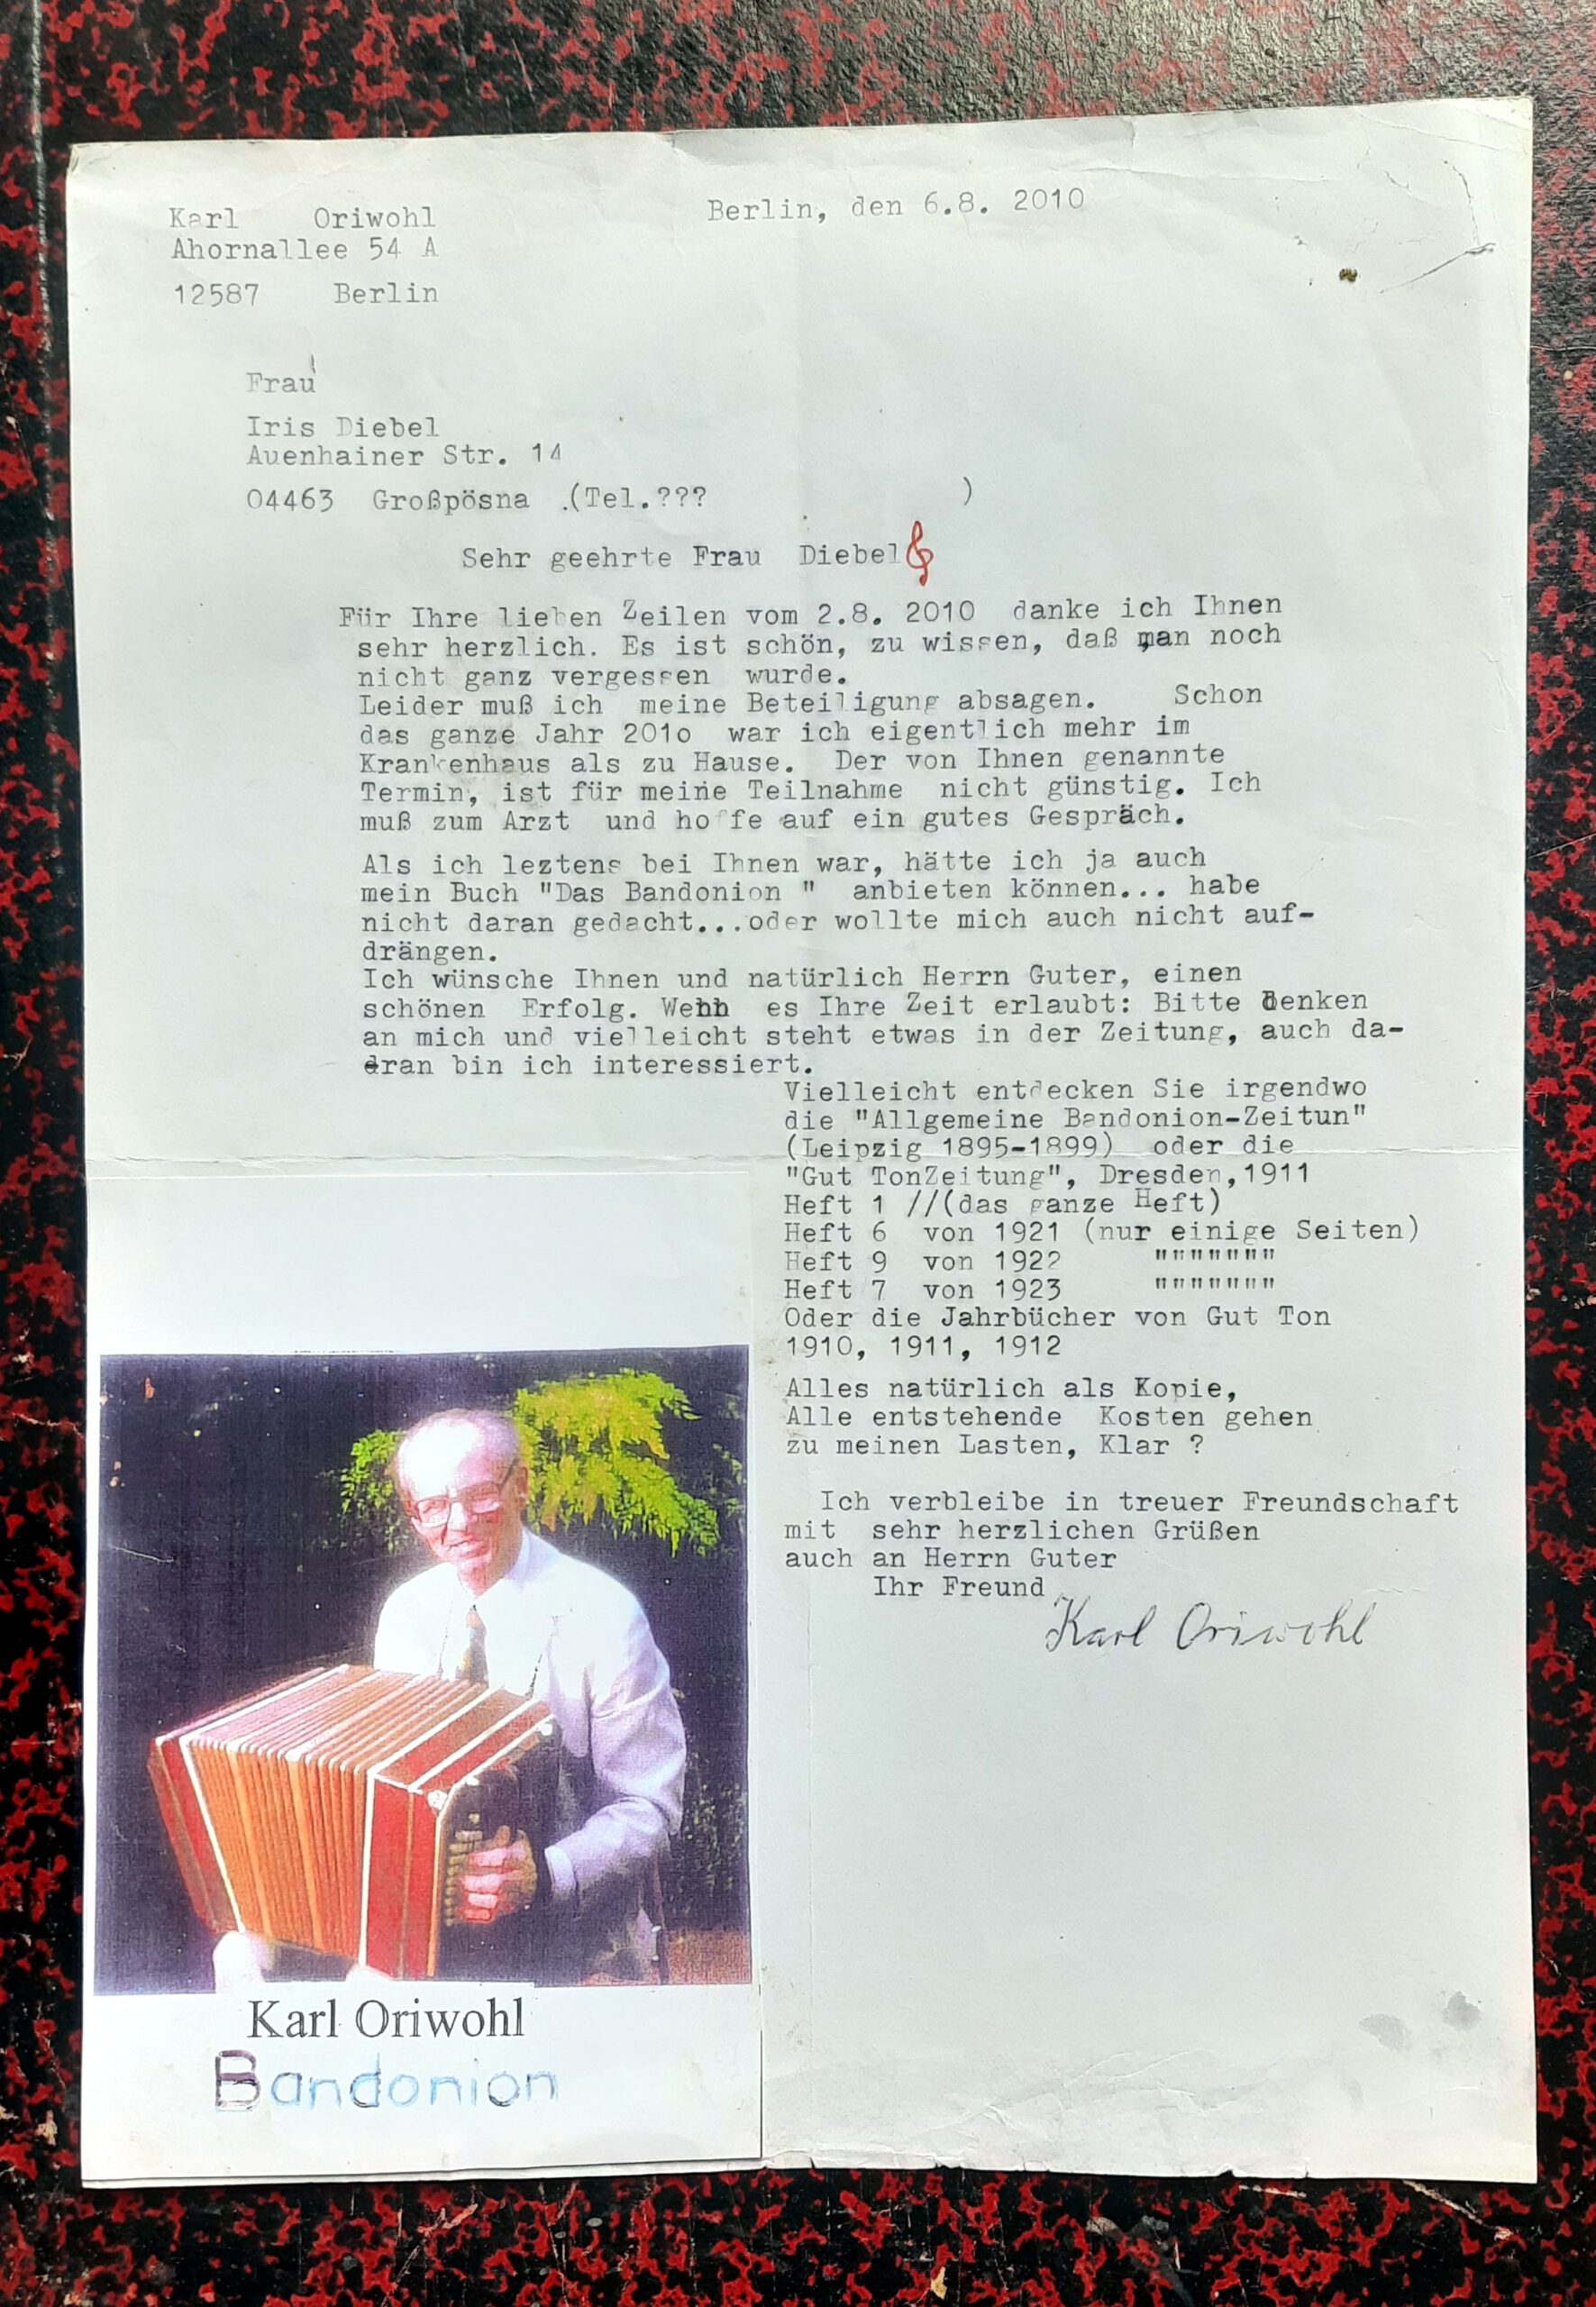 Karl Oriwohl
Berlin, den 6.8. 2010
Ahornallee 54 A
12587 Berlin
Frau
Iris Diebel
Auenhainer Str. 14
04463 Großpösna .(Tel.??? )
Sehr geehrte Frau Diebel
Für Ihre lieben Zeilen vom 2.8. 2010 danke ich Ihnen
sehr herzlich. Es ist schön, zu wissen, daß man noch
nicht ganz vergessen wurde.
Leider muß ich meine Beteiligung absagen. Schon
das ganze Jahr 201o war ich eigentlich mehr im
Krankenhaus als zu Hause. Der von Ihnen genannte
Termin, ist für meine Teilnahme nicht günstig. Ich
muß zum Arzt und hoffe auf ein gutes Gespräch.
Als ich leztens bei Ihnen war, hätte ich ja auch
mein Buch "Das Bandonion " anbieten können... habe
nicht daran gedacht...oder wollte mich auch nicht auf-
drängen.
Ich wünsche Ihnen und natürlich Herrn Guter, einen
schönen Erfolg. Wenn es Ihre Zeit erlaubt: Bitte denken
an mich und vielleicht steht etwas in der Zeitung, auch da-
dran bin ich interessiert.
Vielleicht entdecken Sie irgendwo
die "Allgemeine Bandonion-Zeitun"
(Leipzig 1895-1899) oder die
"Gut TonZeitung", Dresden,1911
Heft 1 //(das ganze Heft)
Heft 6 von 1921 (nur einige Seiten)
Heft 9 von 1922 """""""
Heft 7 von 1923 """""""
Oder die Jahrbücher von Gut Ton
1910, 1911, 1912
Alles natürlich als Kopie,
Alle entstehende Kosten gehen
zu meinen Lasten, Klar ?
Ich verbleibe in treuer Freundschaft
mit sehr herzlichen Grüßen
auch an Herrn Guter
Ihr Freund
Karl Oriwohl
Karl Oriwohl
Bandonion